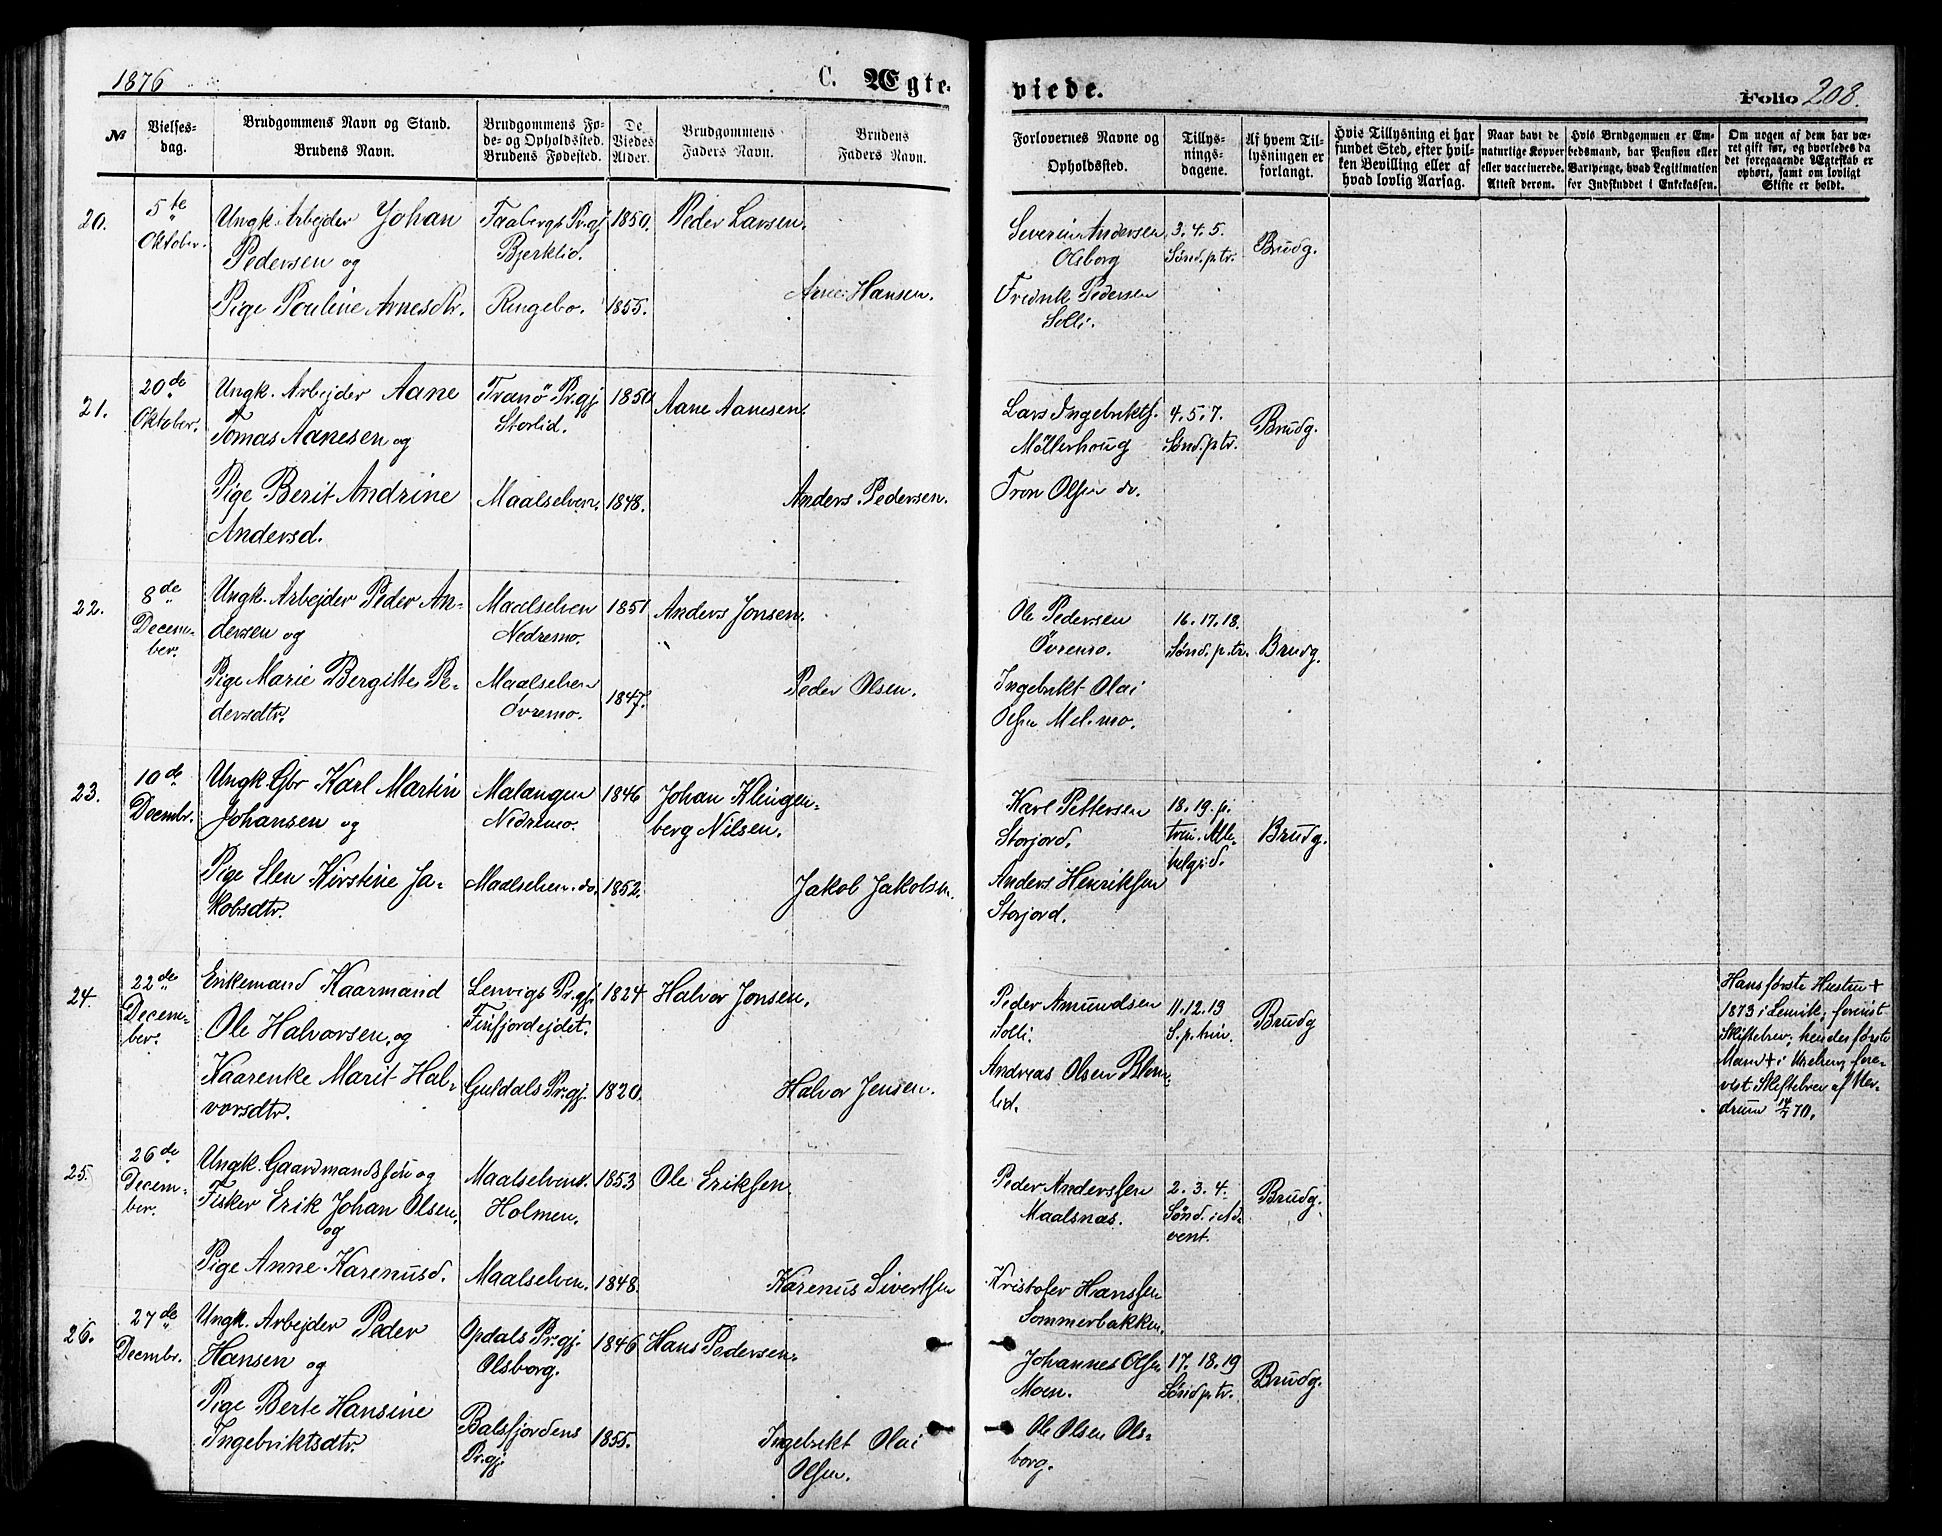 1876
C. Ægte-
viede.
Folio 208.
№
Vielses-
dag.
Brudgommens Navn og Stand.
Brudens Navn.
Brudgommens Fø-
de- og Opholdssted.
Brudens Fødested.
De
Viedes
Alder.
Brudgommens
Faders Navn.
Brudens
Faders Navn.
Forlovernes Navne og
Opholdssted.
Tillys-
nings-
dagene.
Af hvem Til-
lysningen er
forlangt.
Hvis Tillysning ei har
fundet Sted, efter hvil-
ken Bevilling eller af
hvad lovlig Aarsag.
Naar havt de
naturlige Kopper
eller vaccinerede.
Attest derom.
Hvis Brudgommen er Em-
bedsmand, har Pension eller
Vartpenge, hvad Legitimation
for Indskuddet i Enkekassen.
Om nogen af dem har væ-
ret gift før, og hvorledes da
det foregaaende Ægteskab er
ophørt, samt om lovligt
Skifte er holdt.
20.
5te
Oktober.
Ungk. Arbejder Johan
Pedersen og
Pige Pouline Arnesdtr.
Faabergs Pr.gj.
Bjerklid.
Ringebo.
1850.
1855.
Peder Larsen.
Arne Hansen.
Severin Andersen
Olsborg
Fredrik Pedersen
Solli.
3. 4. 5.
Sønd. p. tr.
Brudg.
21.
20de
Oktober.
Ungk. Arbejder Aane
Tomas Aanesen og
Pige Berit Andrine
Andersd.
Tranö Pr.gj.
Storlid.
Maalselven.
1850.
1848.
Aane Aanesen.
Anders Pedersen.
Lars Ingebrikts.
Möllerhoug
Tron Olsen do.
4. 5. 7.
Sønd. p. tr.
Brudg.
22.
8de
Decem-
ber.
Ungk. Arbejder Peder An-
dersen og
Pige Marie Bergitte Pe-
dersdtr.
Maalselven
Nedremo.
Maalselven
Övremo.
1851
1847.
Anders Jonsen.
Peder Olsen.
Ole Pedersen
Övremo.
Ingebrikt Olai
Olsen Mel.mo.
16. 17. 18.
Sønd. p. tr.
Brudg.
23.
10de
Decembr.
Ungk. Gbr Karl Martin
Johansen og
Pige Elen Kirstine Ja-
kobsdtr.
Malangen
Nedremo.
Maalselven. do.
1846
1852.
Johan Klingen-
berg Nilsen.
Jakob Jakobsen.
Karl Pettersen
Storjord.
Anders Henriksen
Storjord.
18. 19. p.
trin. Alle-
helgs.d.
Brudg.
24.
22de
Decem-
ber.
Enkemand Kaarmand
Ole Halvorsen, og
Kaarenke Marit Hal-
vorsdtr.
Lenvigs Pr.gj.
Finfjordejdet.
Guldals Pr.gj.
1824
1820.
Halvor Jonsen.
Halvor Jensen.
Peder Amundsen
Solli.
Andreas Olsen Blom-
lid.
11. 12. 13
S. p. trin.
Brudg
Hans første Hustru +
1873 i Lenvik; forevist
Skiftebrev; hendes første
Mand + i
vist Skiftebrev af
drum 14/7 70.
25.
26de
Decem-
ber.
Ungk. Gaardmandssøn og
Fisker Erik Johan Olsen,
og
Pige Anne Karenusd.
Maalselven.
Holmen.
Maalselven.
1853
1848.
Ole Eriksen.
Karenus Sivertsen
Peder Anderssen
Maalsnæs.
Kristofer Hanssen
Sommerbakken.
2. 3. 4.
Sønd. i Ad-
vent.
Brudg.
26.
27de
Decembr.
Ungk. Arbejder Peder
Hansen og
Pige Berte Hansine
Ingebriktsdtr.
Opdals Pr.gj.
Olsborg.
Balsfjordens
Pr.gj.
1846
1855.
Hans Pedersen.
Ingebrikt Olai
Olsen.
Johannes Olsen
Moen.
Ole Olsen Ols-
borg.
17. 18. 19
Sønd p. tr.
Brudg.